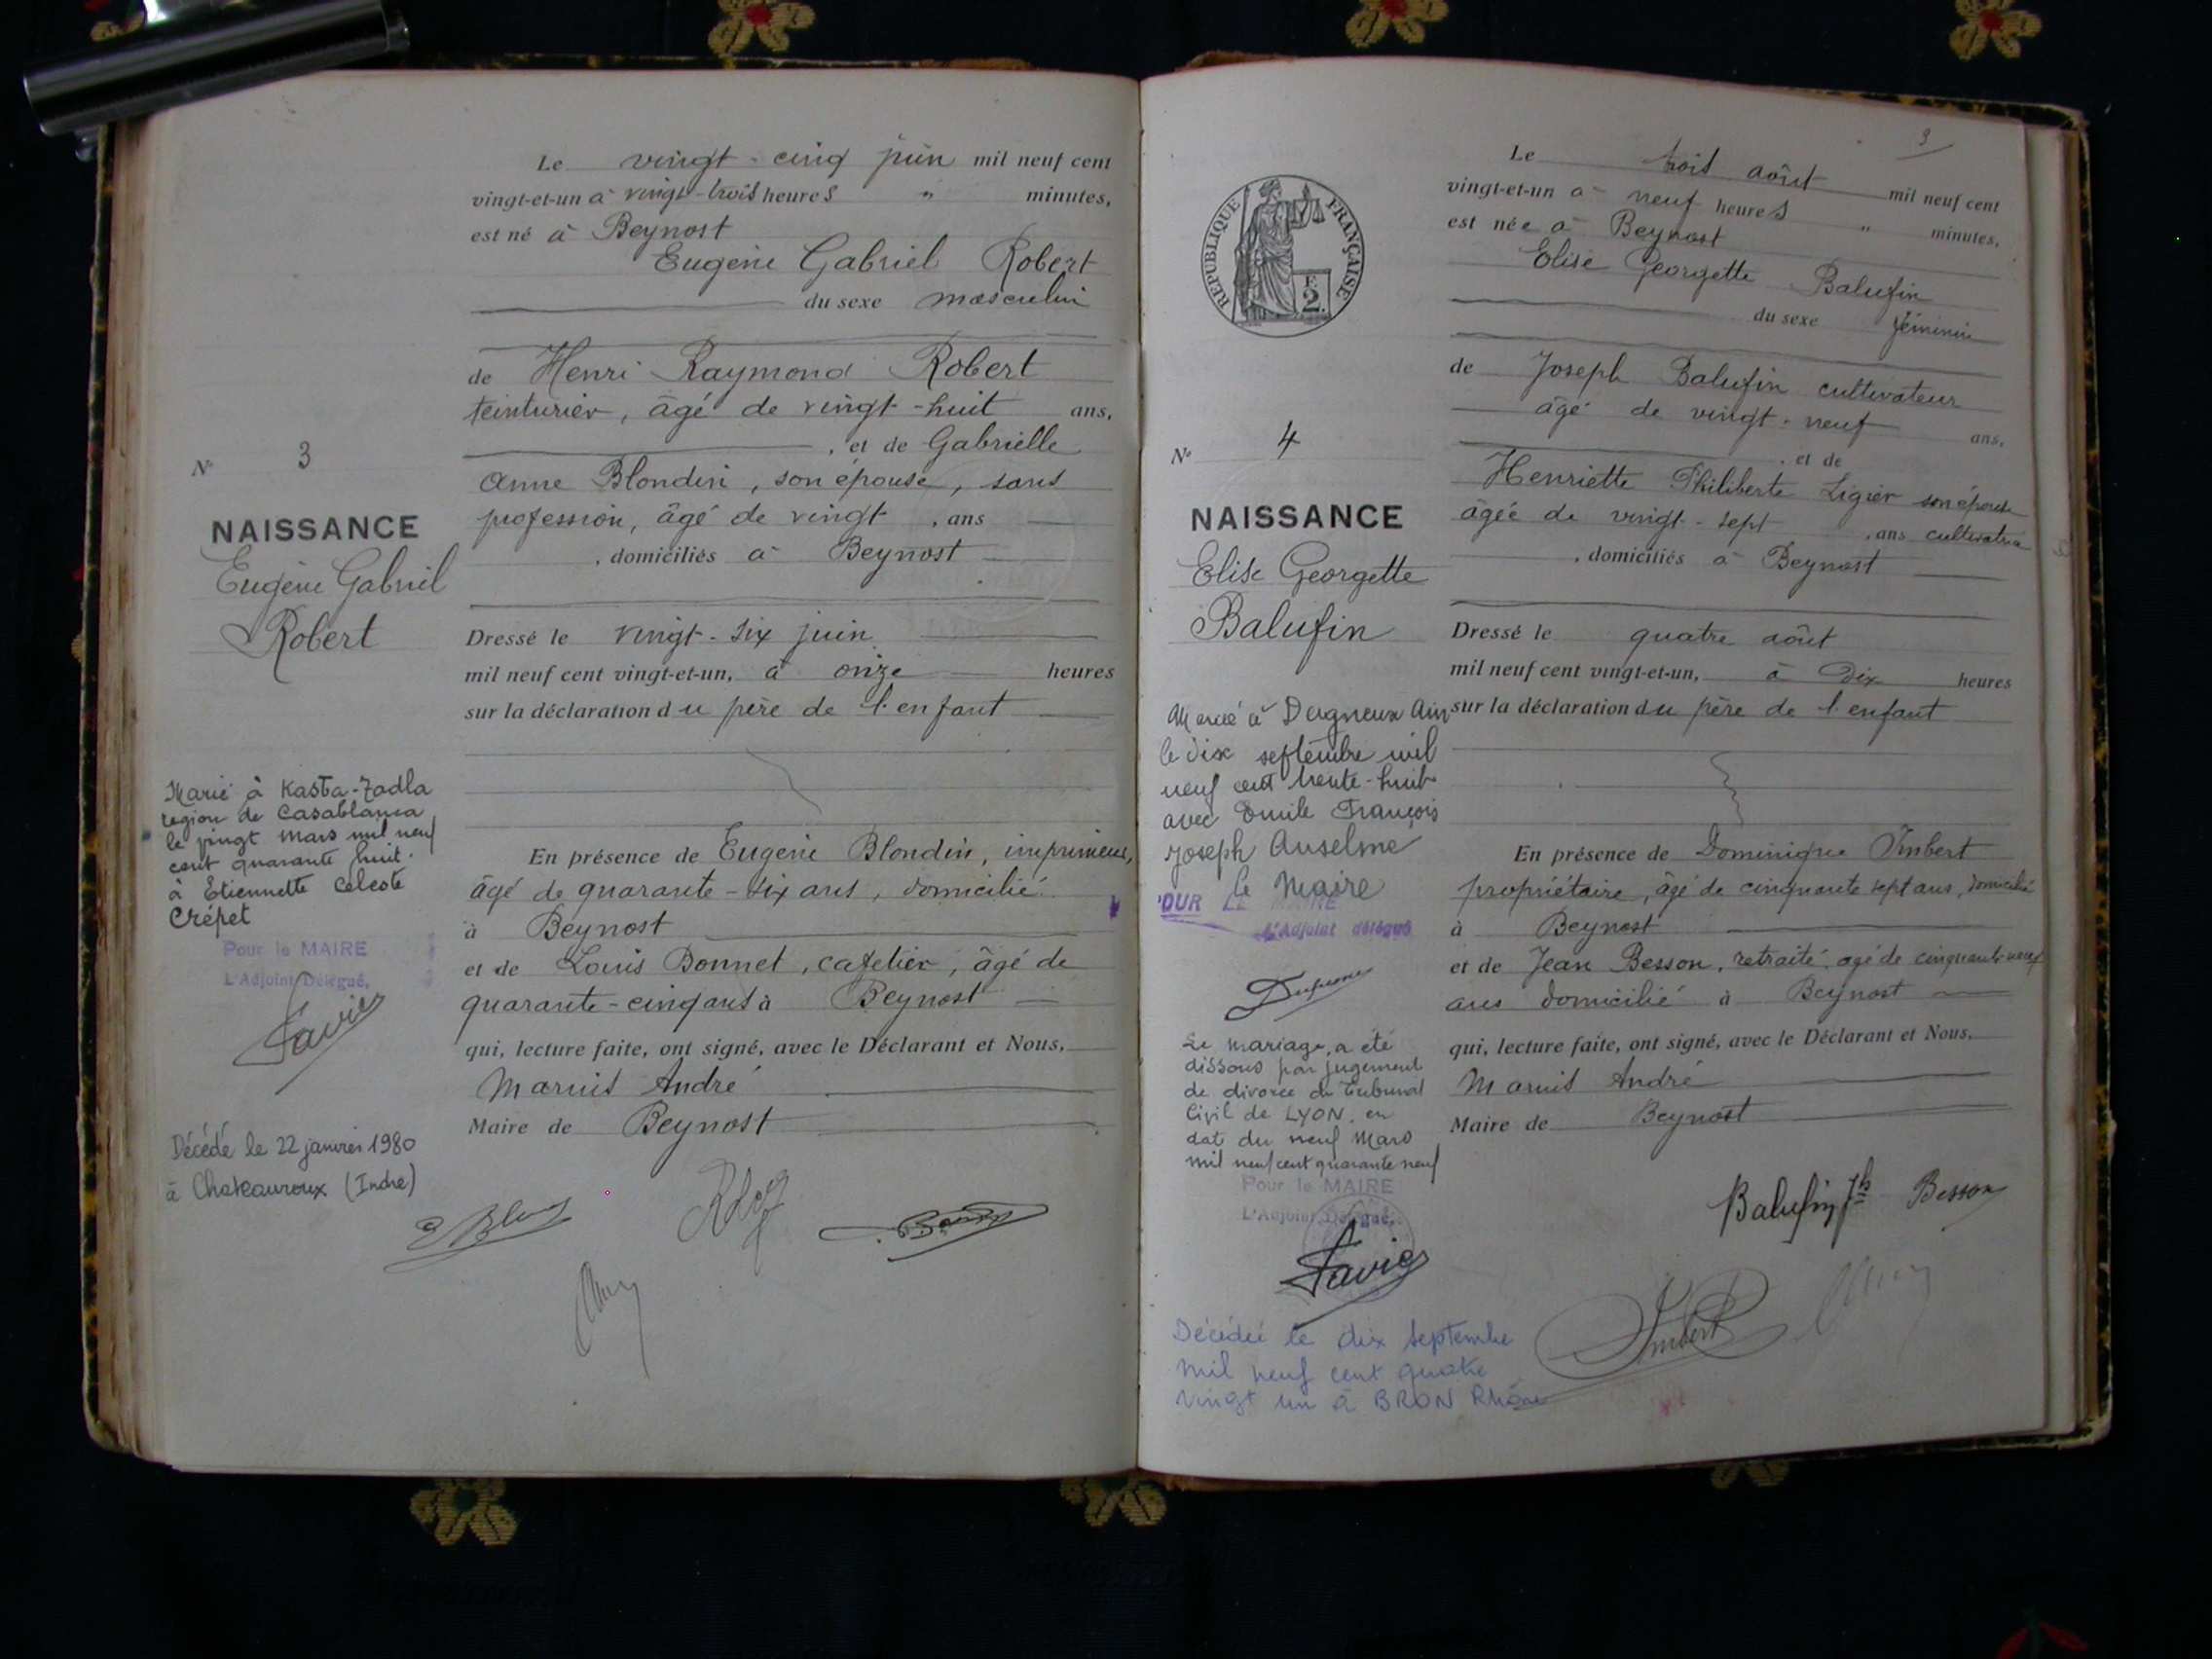 Le vingt-cinq juin mil neuf cent
vingt-et-un à vingt-trois heures " minutes,
est né à Beynost
Eugène Gabriel Robert
du sexe masculin
de Henri Raymond Robert
teinturier, âgé de vingt-huit ans,
, et de Gabrielle
Anne Blondin, son épouse, sans
profession, âgé de vingt , ans
, domiciliés à Beynost
Dressé le vingt-six juin
mil neuf cent vingt-et-un, à onze heures
sur la déclaration du père de l'enfant
En présence de Eugène Blondin, imprimeur,
âgé de quarante-six ans, domicilié
à Beynost
et de Louis Bonnet, cafetier, âgé de
quarante-cinq ans à Beynost
qui, lecture faite, ont signé, avec le Déclarant et Nous,
Maruis André
Maire de Beynost
N° 3
NAISSANCE
Eugène Gabriel
Robert
Marié à Kasta-Zadla
région de Casablanca
le vingt Mars mil neuf
cent quarante huit
à Etiennette Céleste
Crépet
Pour le MAIRE
L'Adjoint Délégué,
Favier
Décédé le 22 janvier 1980
à Chateauroux (Indre)
3
REPUBLIQUE FRANÇAISE
2
Le trois août mil neuf cent
vingt-et-un à neuf heures " minutes,
est née à Beynost
Elise Georgette Balufin
du sexe féminin
de Joseph Balufin cultivateur
âgé de vingt-neuf ans,
, et de
Henriette Philiberte Ligier son épouse
âgée de vingt-sept , ans cultivatrice
, domiciliés à Beynost
Dressé le quatre août
mil neuf cent vingt-et-un, à Dix heures
sur la déclaration du père de l'enfant
En présence de Dominique Imbert
propriétaire, âgé de cinquante sept ans, domicilié
à Beynost
et de Jean Besson, retraité, agé de cinquante-neuf
ans domicilié à Beynost
qui, lecture faite, ont signé, avec le Déclarant et Nous,
Maruis André
Maire de Beynost
Balufin Jh Besson
Imbert
N° 4
NAISSANCE
Elise Georgette
Balufin
Marié à Dagneux Ain
le dix septembre mil
neuf cent trente-huit
avec Emile François
Joseph Anselme
le Maire
POUR LE MAIRE
L'Adjoint délégué
Le mariage a été
dissous par jugement
de divorce du Tribunal
Civil de LYON. en
dat du neuf Mars
mil neuf cent quarante neuf
Pour le MAIRE
L'Adjoint Délégué,
Favier
Décédée le dix septembre
mil neuf cent quatre
vingt un à BRON Rhône